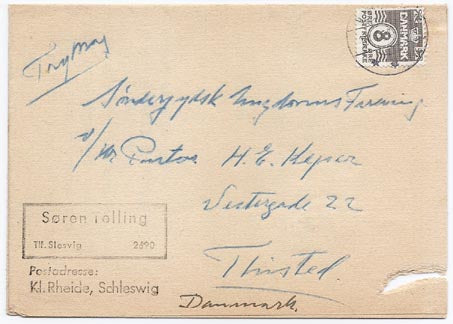 Tryksag
DANMARK
8
Sønderjydsk Ungdoms Forening
v/Hr. Pastor H. E. Kejser
Vestergade 22
Thisted.
Danmark.
Søren Tolling
Tlf. Slesvig 2690
Postadresse:
Kl. Rheide, Schleswig